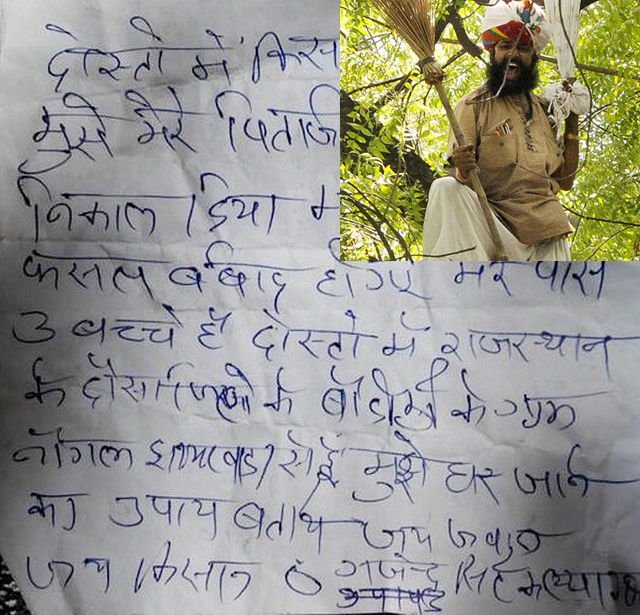 दोस्तो में किस
मुझे मेरे पिताजी
निकाल दिया म
फसल बर्बाद होगए मेरे पास
3 बच्चे हैं दोस्तो में राजस्थान
के दौसा जिले के बाँदीकुई के ग्राम
नाँगल झामरवाडा से हूँ मुझे घर जाने
का उपाय बताये जय जवान
जय किसान गजेन्द्र सिंह कल्याणव